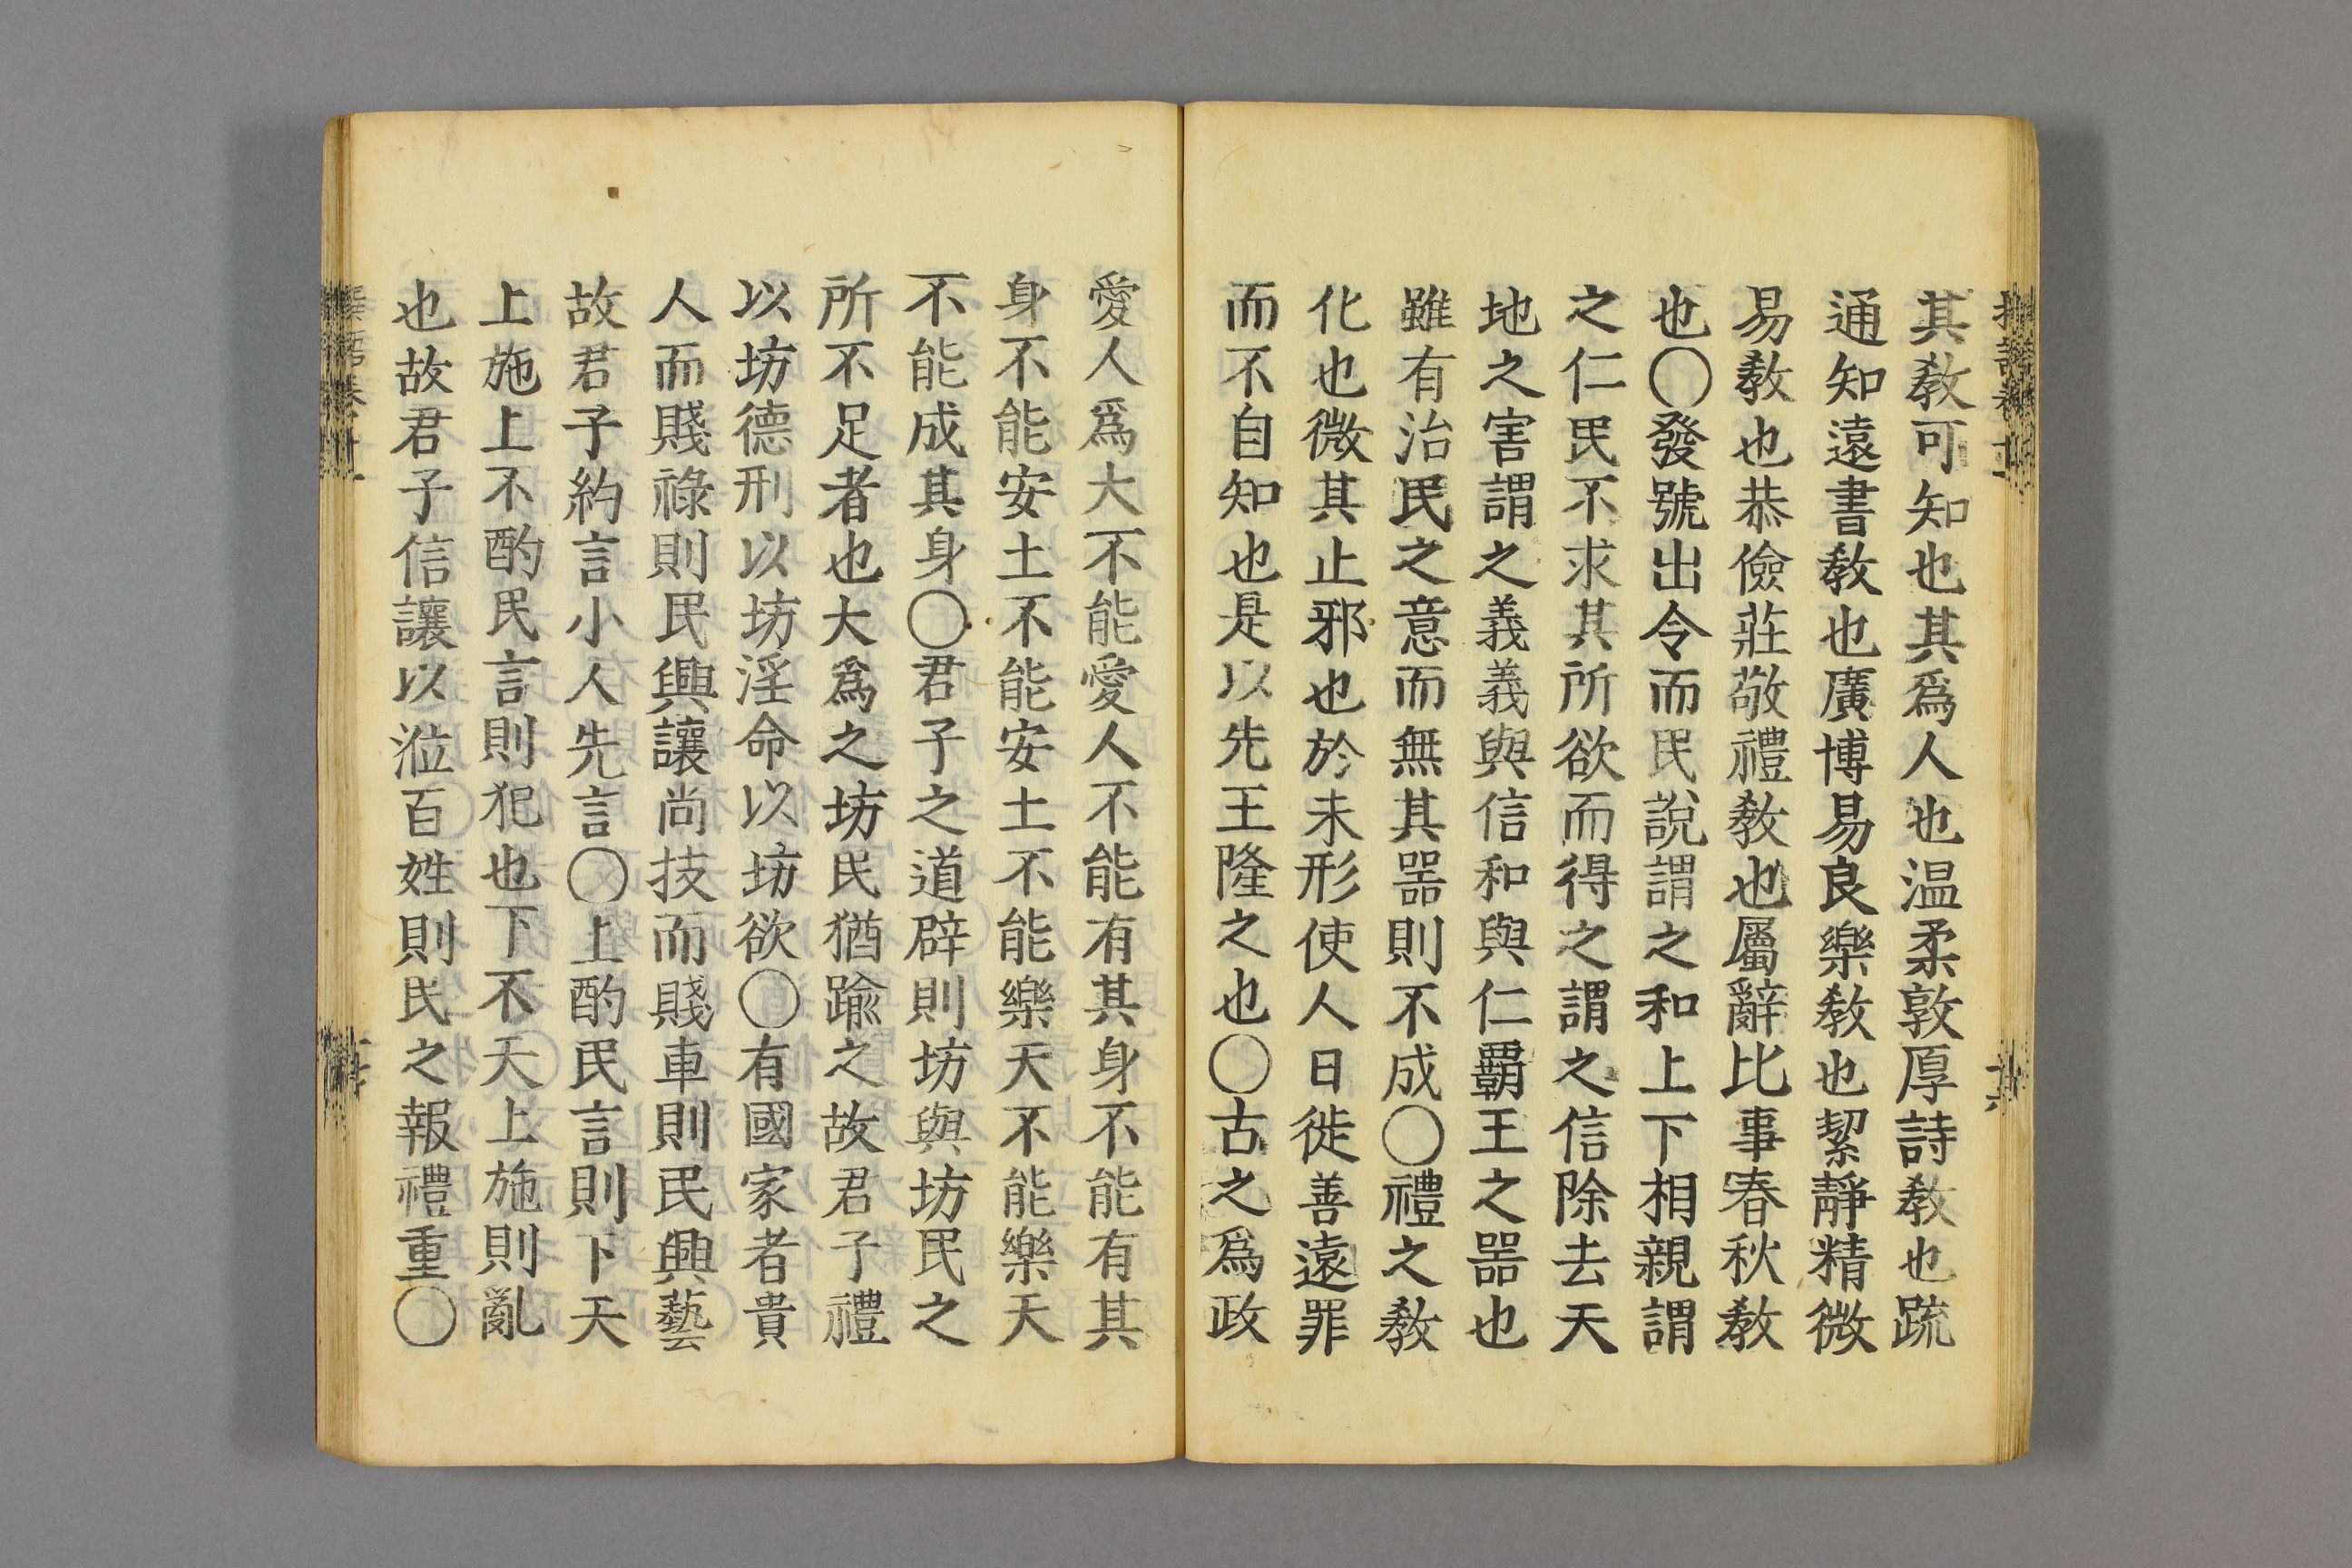 其教可知也其爲人也温柔敦厚詩教也疏
通知遠書教也廣博易良樂教也絜靜精微
易教也恭儉莊敬禮教也屬辭比事春秋教
也〇發號出令而民說謂之和上下相親謂
之仁民不求其所欲而得之謂之信除去天
地之害謂之義義與信和與仁霸王之器也
雖有治民之意而無其器則不成〇禮之教
化也微其止邪也於未形使人日徙善遠罪
而不自知也是以先王隆之也〇古之爲政
愛人爲大不能愛人不能有其身不能有其
身不能安土不能安土不能樂天不能樂天
不能成其身〇君子之道辟則坊與坊民之
所不足者也大爲之坊民猶踰之故君子禮
以坊德刑以坊淫命以坊欲〇有國家者貴
人而賤祿則民興讓尚技而賤車則民興藝
故君子約言小人先言〇上酌民言則下天
上施上不酌民言則犯也下不天上施則亂
也故君子信讓以涖百姓則民之報禮重〇